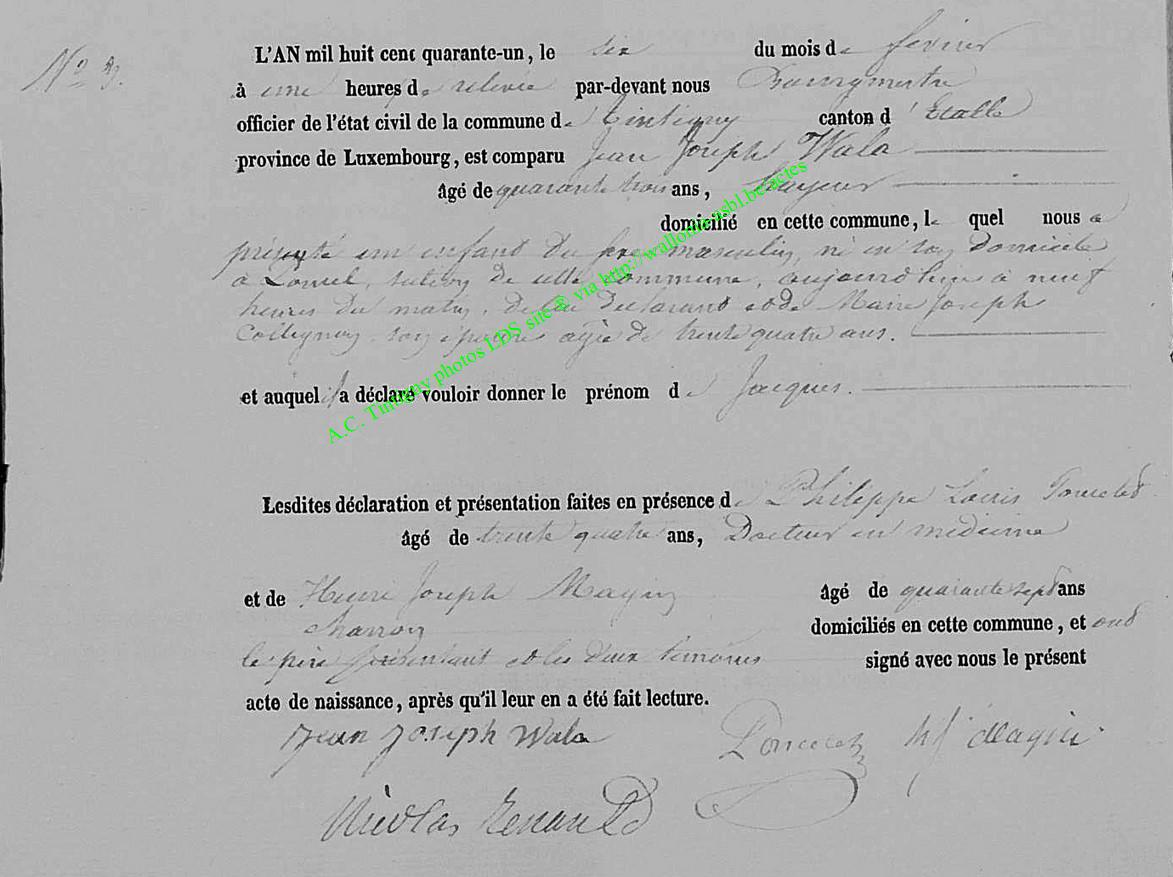 N° 9.
L'AN mil huit cent quarante-un, le six du mois de février
à une heures de relevée par-devant nous Bourgmestre
officier de l'état civil de la commune de Tintigny canton d'Etalle
province de Luxembourg, est comparu Jean Joseph Wala
âgé de quarante trois ans,
domicilié en cette commune, le quel nous a
présenté un enfant du sexe masculin, né en son domicile
à section de cette commune, aujourd'hui à neuf
heures du matin, de lui déclarant et de Marie Joseph
son épouse âgée de trente quatre ans.
et auquel il a déclaré vouloir donner le prénom de Jacques.
Lesdites déclaration et présentation faites en présence de Philippe Louis Poncelet
âgé de trente quatre ans, Docteur en médecine
et de Henri Joseph Magin âgé de quarante sept ans
charron domiciliés en cette commune, et ont
le père présentant et les deux témoins signé avec nous le présent
acte de naissance, après qu'il leur en a été fait lecture.
Jean Joseph Wala Poncelet hj Magin
Nicolas Renauld
A.C. Tintigny photos LDS site @ via http://wallonia.asbl.be/actes